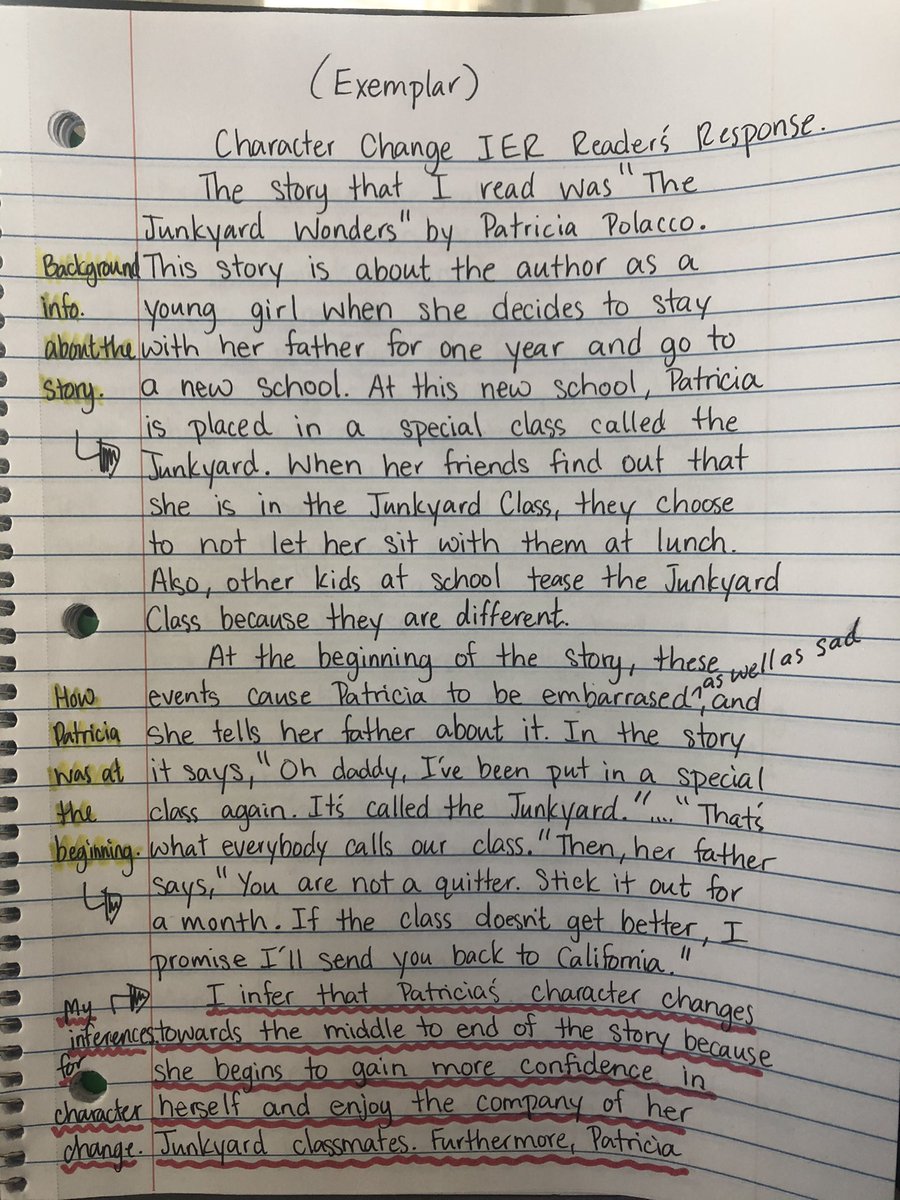 (Exemplar)
Character Change IER Reader's Response.
The story that I read was "The
Junkyard Wonders" by Patricia Polacco.
Background This story is about the author as a
info. young girl when she decides to stay
about the with her father for one year and go to
story. a new school. At this new school, Patricia
is placed in a special class called the
Junkyard. When her friends find out that
she is in the Junkyard Class, they choose
to not let her sit with them at lunch.
Also, other kids at school tease the Junkyard
Class because they are different.
At the beginning of the story, these
as well as sad
How events cause Patricia to be embarrased^, and
Patricia she tells her father about it. In the story
was at it says, "Oh daddy, I've been put in a special
the class again. It's called the Junkyard."...."That's
beginning. what everybody calls our class." Then, her father
says, "You are not a quitter. Stick it out for
a month. If the class doesn't get better, I
promise I'll send you back to California."
My I infer that Patricia's character changes
inferences towards the middle to end of the story because
for she begins to gain more confidence in
character herself and enjoy the company of her
change. Junkyard classmates. Furthermore, Patricia